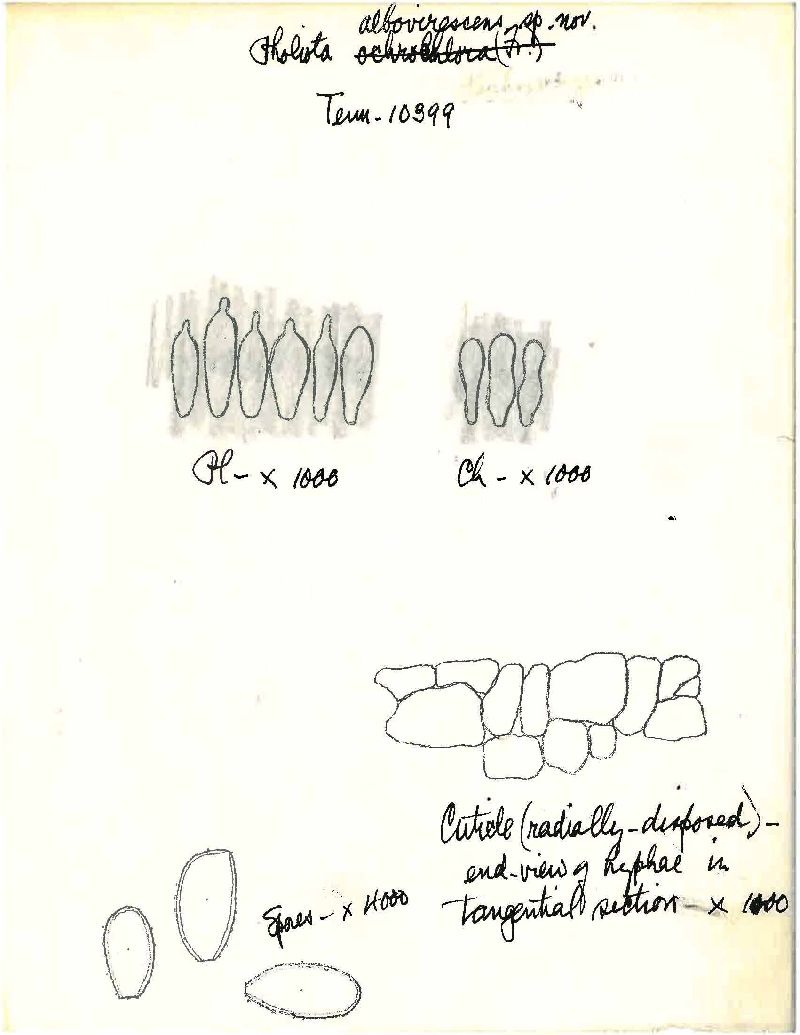 albovirescens, sp. nov.
Pholiota ochrochlora (Fr.)
Tenn-10399
Pl- x 1000
Ch - x 1000
Cuticle (radially-disposed) -
end-view of hyphae in
tangential section - x 1000
Spores - x 4000